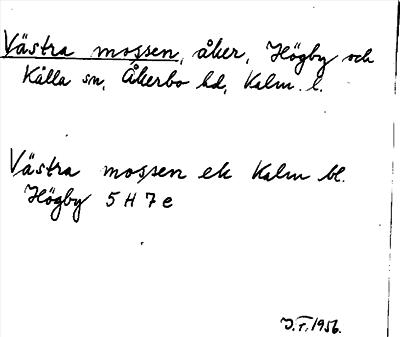 Västra mossen, åker, Högby och
Källa sn, Åkerbo hd, Kalm. l.
Västra mossen ek Kalm bl.
Högby 5 H 7 e
J.T. 1956.